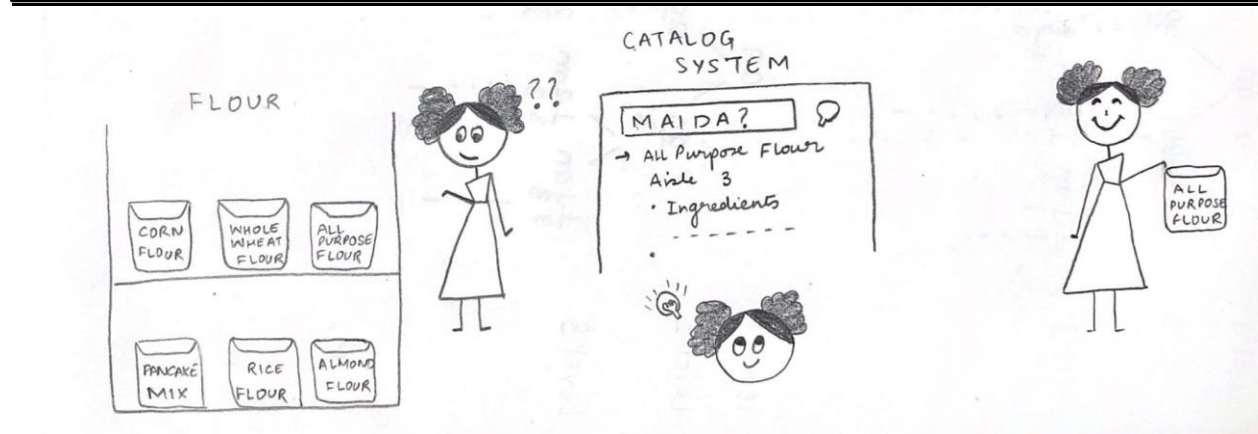 FLOUR
CORN
FLOUR
WHOLE
WHEAT
FLOUR
ALL
PURPOSE
FLOUR
PANCAKE
MIX
RICE
FLOUR
ALMOND
FLOUR
??
CATALOG
SYSTEM
MAIDA?
→ All Purpose Flour
Aisle 3
• Ingredients
ALL
PURPOSE
FLOUR